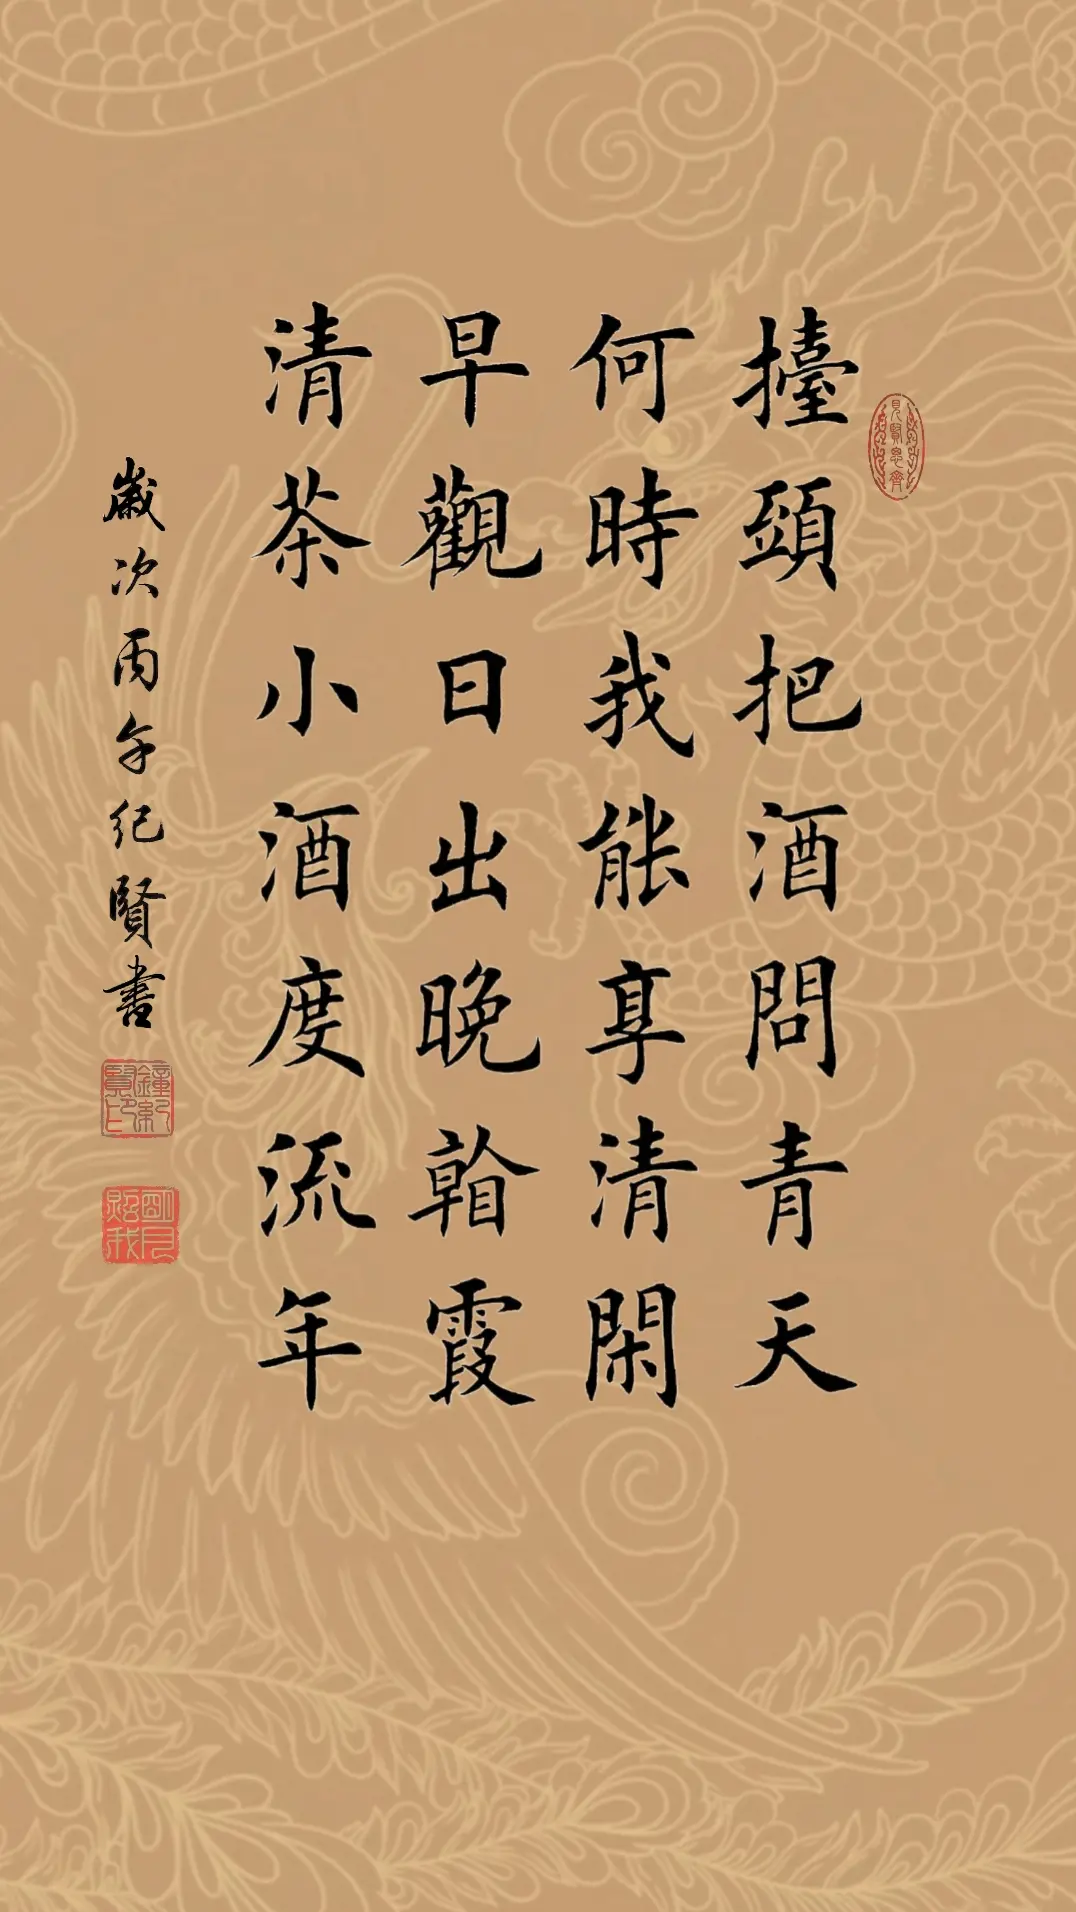 擡頭把酒問青天
何時我能享清閑
早觀日出晚霞
清茶小酒度流年
歲次丙午紀賢書
見賢思齊
鐘紀賢印